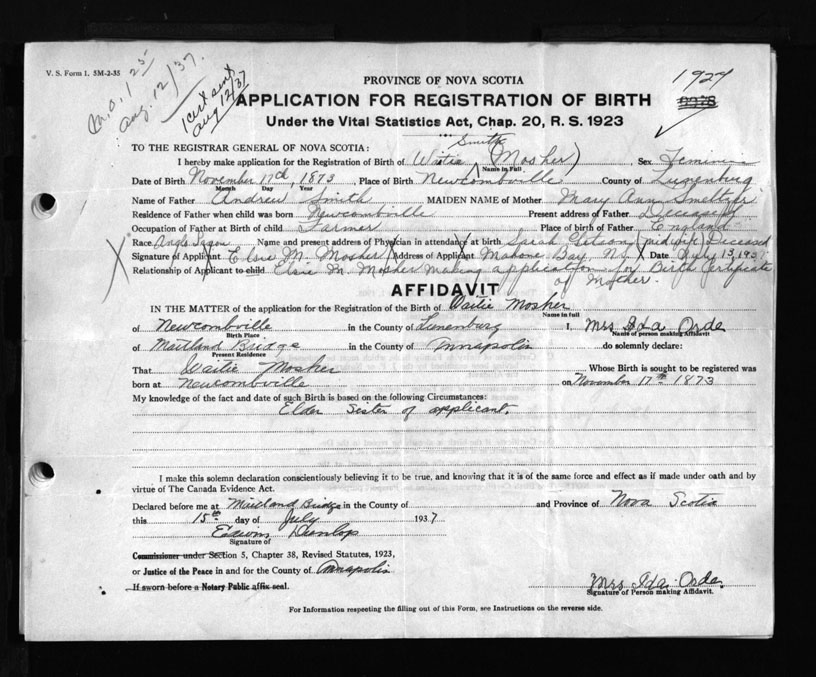 V. S. Form 1. 5M-2-35
M.O. 1 25
Aug. 12/37.
1 cert sent
Aug 12/37
1927
PROVINCE OF NOVA SCOTIA
APPLICATION FOR REGISTRATION OF BIRTH
Under the Vital Statistics Act, Chap. 20, R. S. 1923
TO THE REGISTRAR GENERAL OF NOVA SCOTIA:
Smith
I hereby make application for the Registration of Birth of Waitie (Mosher) Sex Feminine
Name in Full
Date of Birth November 17th, 1873 Place of Birth Newcombville County of Lunenburg
Month Day Year
Name of Father Andrew Smith MAIDEN NAME of Mother Mary Ann Smeltzer
Residence of Father when child was born Newcombville Present address of Father Deceased
Occupation of Father at Birth of child Farmer Place of birth of Father England
Race Anglo Saxon Name and present address of Physician in attendance at birth Sarah (midwife) Deceased
Signature of Applicant Elsie M. Mosher Address of Applicant Mahone Bay, N.S. Date July 13, 1937
Relationship of Applicant to child Elsie M. Mosher making application for Birth Certificate
of Mother.
AFFIDAVIT
IN THE MATTER of the application for the Registration of the Birth of Waitie Mosher
Name in full
of Newcombville in the County of Lunenburg I, Mrs Ida Orde
Birth Place Name of person making Affidavit
of Maitland Bridge in the County of Annapolis do solemnly declare:
Present Residence
That Waitie Mosher Whose Birth is sought to be registered was
born at Newcombville on November 17th 1873
My knowledge of the fact and date of such Birth is based on the following Circumstances:
Elder Sister of applicant.
I make this solemn declaration conscientiously believing it to be true, and knowing that it is of the same force and effect as if made under oath and by
virtue of The Canada Evidence Act.
Declared before me at Maitland Bridge in the County of and Province of Nova Scotia
this 15th day of July 1937
Edwin Dunlop
Signature of
Commissioner under Section 5, Chapter 38, Revised Statutes, 1923,
or Justice of the Peace in and for the County of Annapolis
If sworn before a Notary Public affix seal.
Mrs Ida Orde.
Signature of Person making Affidavit.
For Information respecting the filling out of this Form, see Instructions on the reverse side.